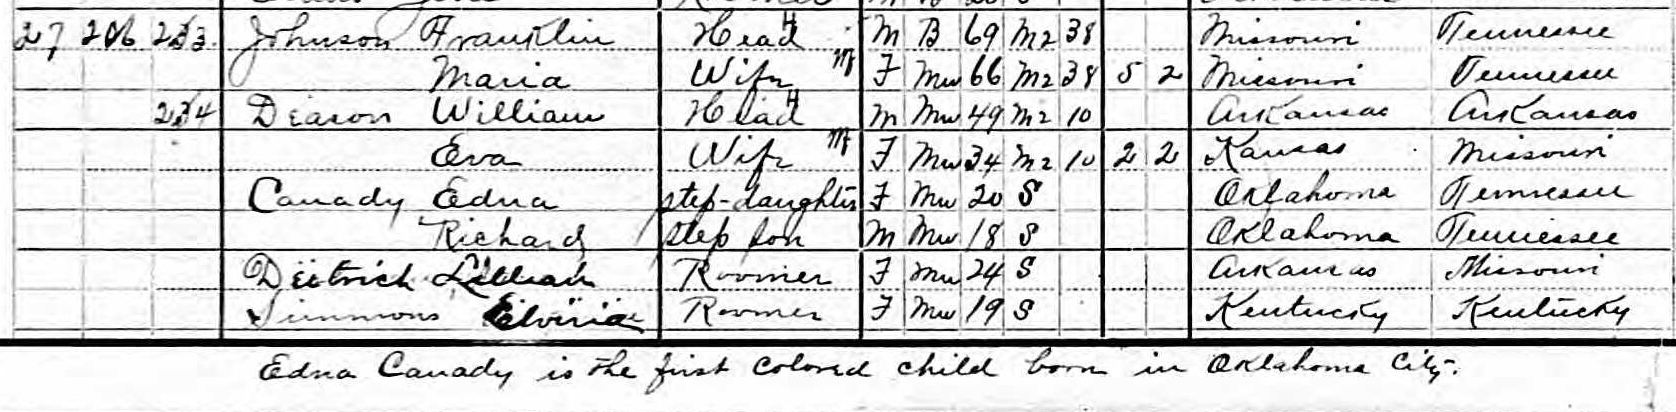 27 206 253 Johnson Franklin Head M B 69 M2 38 Missouri Tennessee
Maria Wife F Mu 66 M2 38 5 2 Missouri Tennessee
254 Deason William Head M Mu 49 M2 10 Arkansas Arkansas
Eva Wife F Mu 34 M2 10 2 2 Kansas Missouri
Canady Edna step-daughter F Mu 20 S Oklahoma Tennessee
Richard step son M Mu 18 S Oklahoma Tennessee
Deitrich Lillian Roomer F Mu 24 S Arkansas Missouri
Simmons Roomer F Mu 19 S Kentucky Kentucky
Edna Canady is the first colored child born in Oklahoma City.